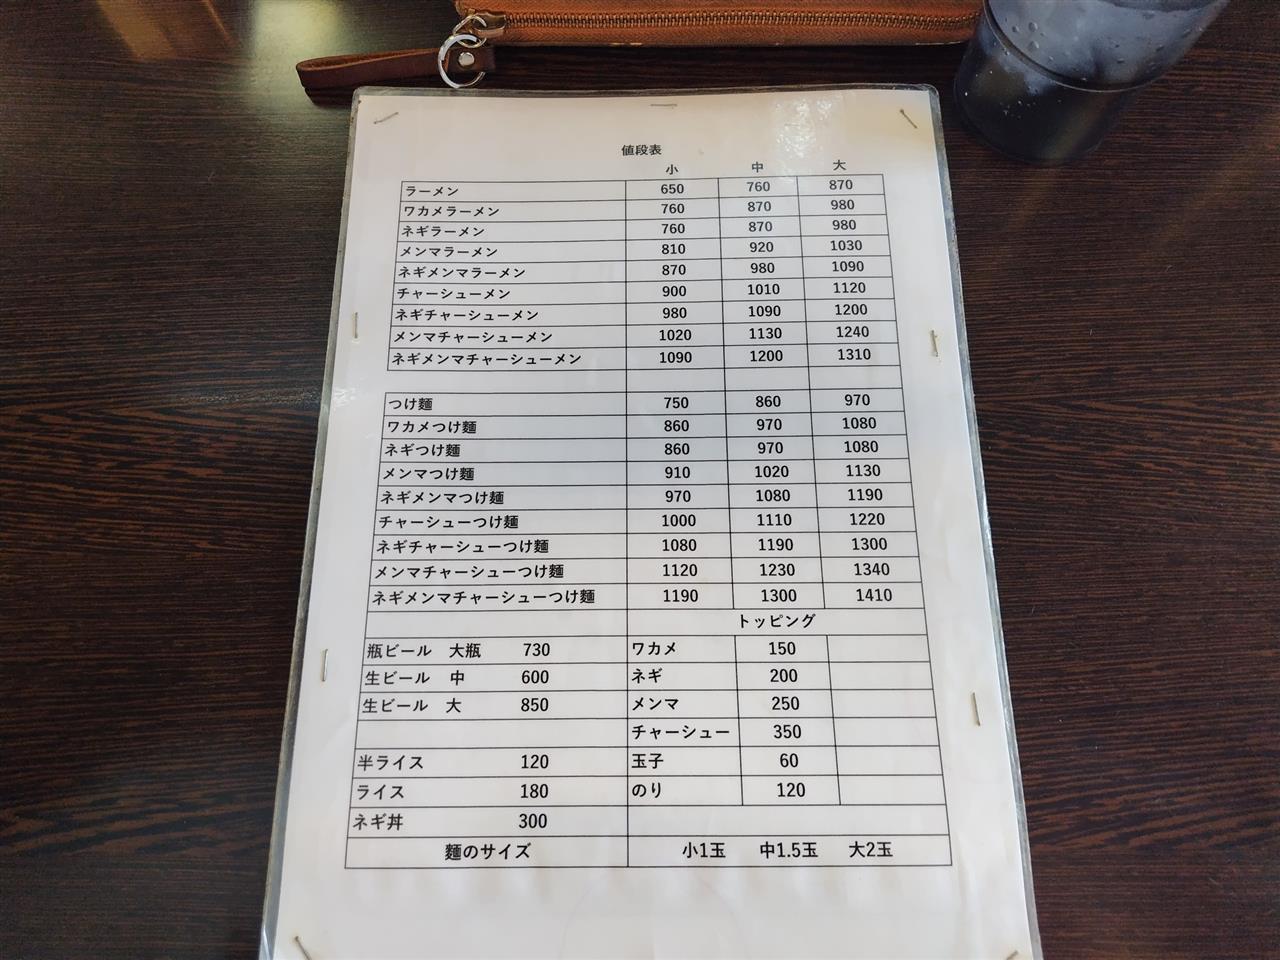 値段表
小 中 大
ラーメン 650 760 870
ワカメラーメン 760 870 980
ネギラーメン 760 870 980
メンマラーメン 810 920 1030
ネギメンマラーメン 870 980 1090
チャーシューメン 900 1010 1120
ネギチャーシューメン 980 1090 1200
メンマチャーシューメン 1020 1130 1240
ネギメンマチャーシューメン 1090 1200 1310
つけ麺 750 860 970
ワカメつけ麺 860 970 1080
ネギつけ麺 860 970 1080
メンマつけ麺 910 1020 1130
ネギメンマつけ麺 970 1080 1190
チャーシューつけ麺 1000 1110 1220
ネギチャーシューつけ麺 1080 1190 1300
メンマチャーシューつけ麺 1120 1230 1340
ネギメンマチャーシューつけ麺 1190 1300 1410
トッピング
瓶ビール 大瓶 730 ワカメ 150
生ビール 中 600 ネギ 200
生ビール 大 850 メンマ 250
チャーシュー 350
半ライス 120 玉子 60
ライス 180 のり 120
ネギ丼 300
麺のサイズ 小1玉 中1.5玉 大2玉